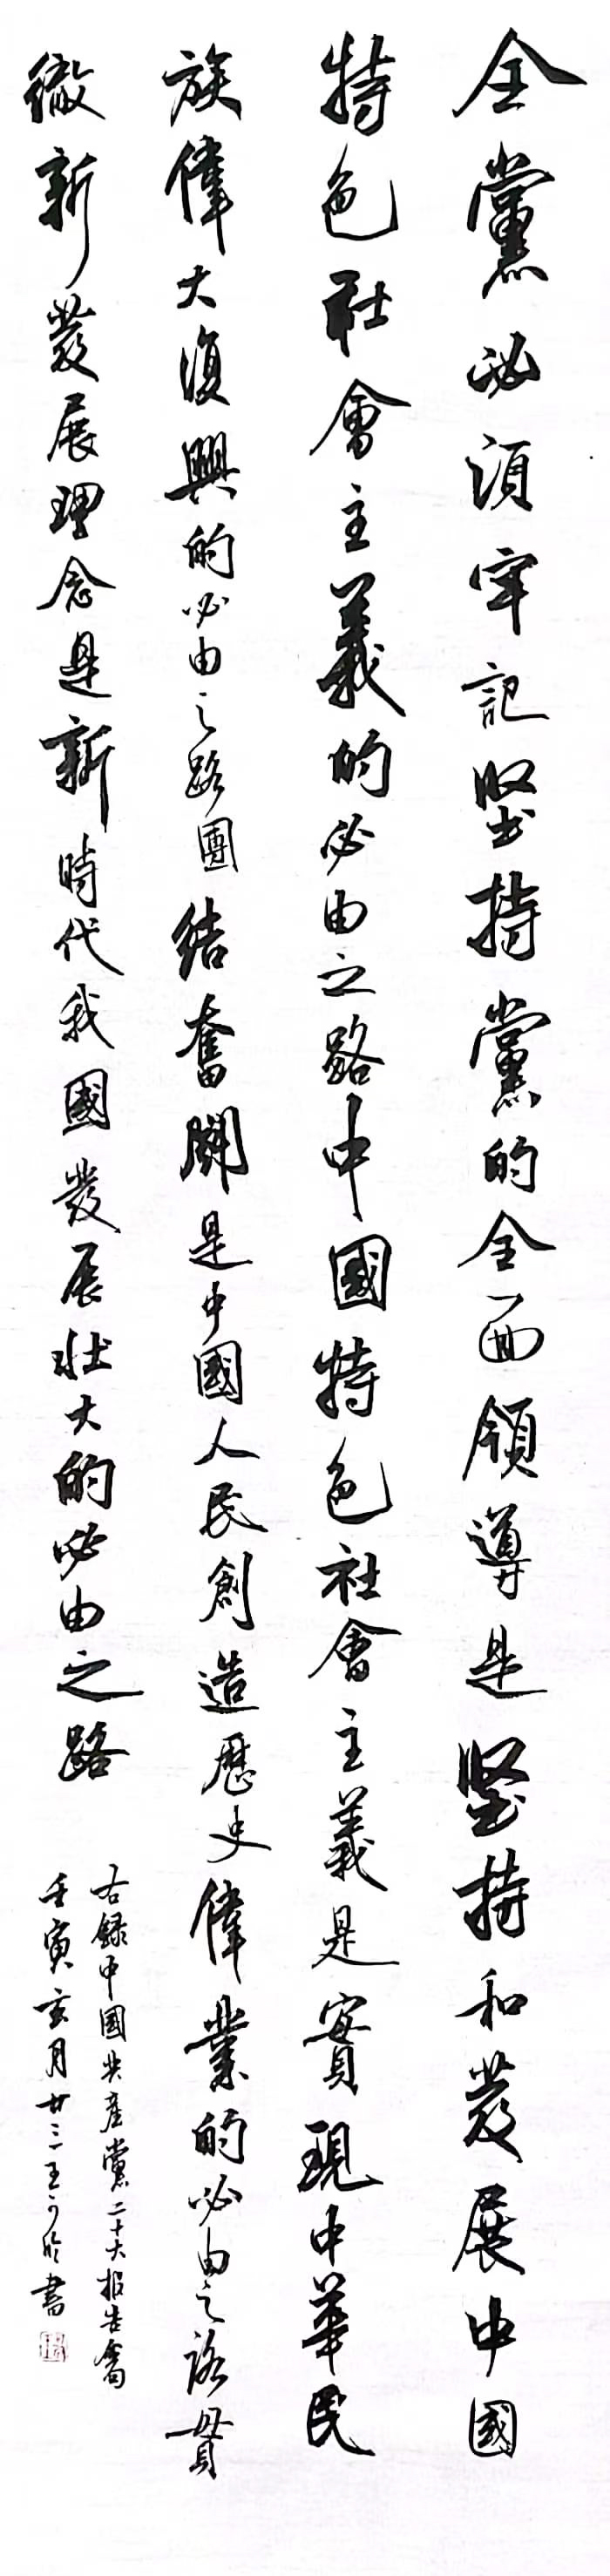 全黨必須牢記堅持黨的全面領導是堅持和發展中國
特色社會主義的必由之路中國特色社會主義是實現中華民
族偉大復興的必由之路團結奮鬪是中國人民創造歷史偉業的必由之路貫
徹新發展理念是新時代我國發展壯大的必由之路
右錄中國共產黨二十大報告
壬寅亥月廿三王書